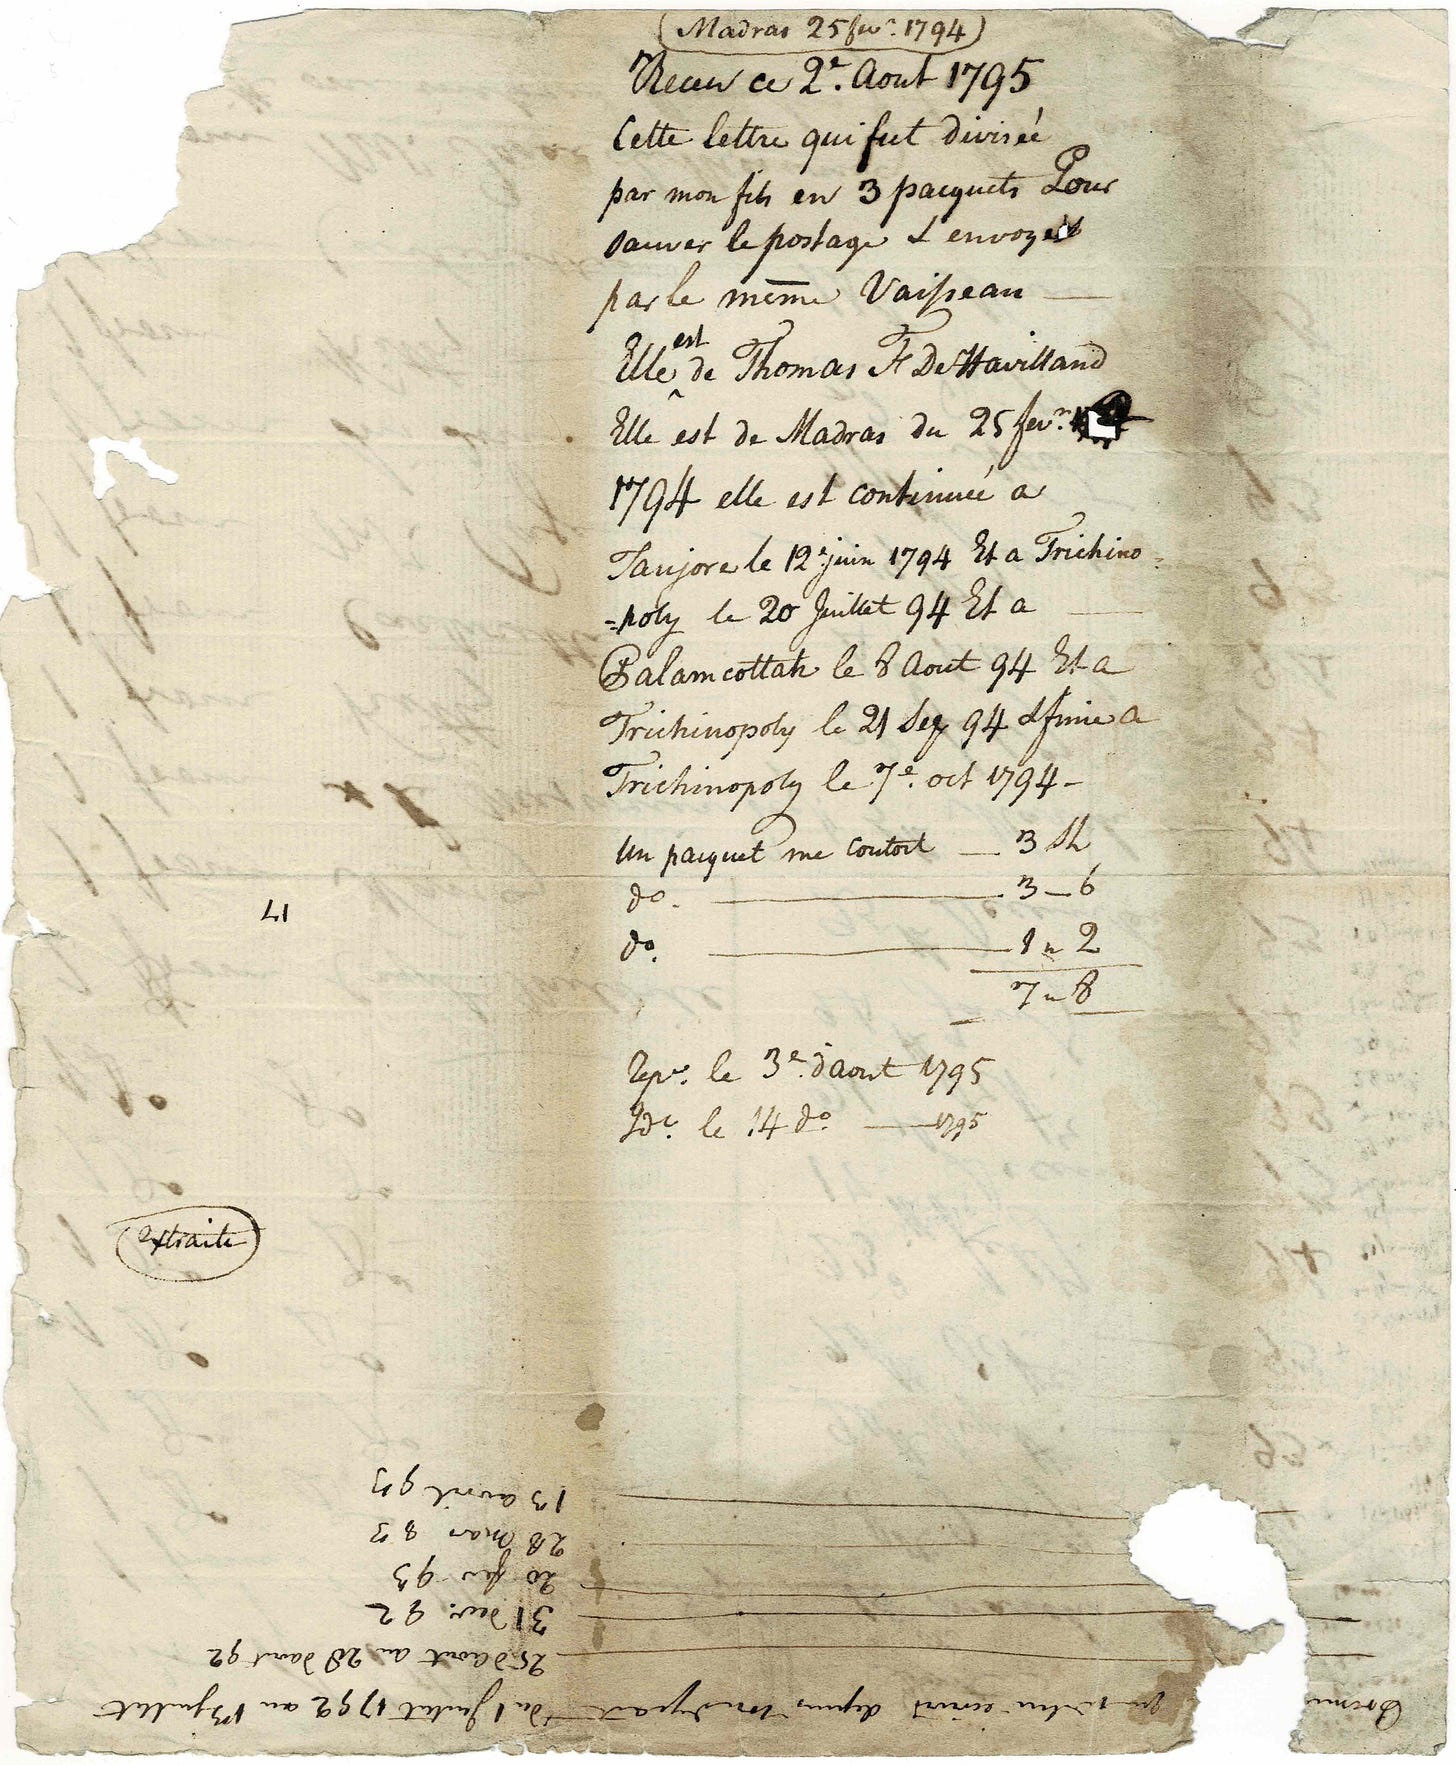 (Madras 25 fevr. 1794)
Receu ce 2e. Aout 1795
Cette lettre qui fut divisée
par mon fils en 3 pacquets Pour
sauver le postage & envoyés
par le même Vaisseau —
Elle est de Thomas F De Havilland
Elle est de Madras du 25 fevr.
1794 elle est continuée a
Tanjore le 12e juin 1794 Et a Trichino=
=poly le 20 Juillet 94 Et a
Palamcottah le 8 Aout 94 Et a
Trichinopoly le 21 Sep 94 & finie a
Trichinopoly le 7e. oct 1794 -
un pacquet me coutoit — 3 Sh
do. — 3 — 6
do. — 1 " 2
7 " 8
repe. le 3e. d'aout 1795
Ide. le 14 do. — 1795
17
extraite
écrivit depuis son départ du 1 Juilet 1792 au 13 juilet
25 d'aout au 28 d'aout 92
31 decr. 92
20 fev 93
28 mars 93
13 avril 93